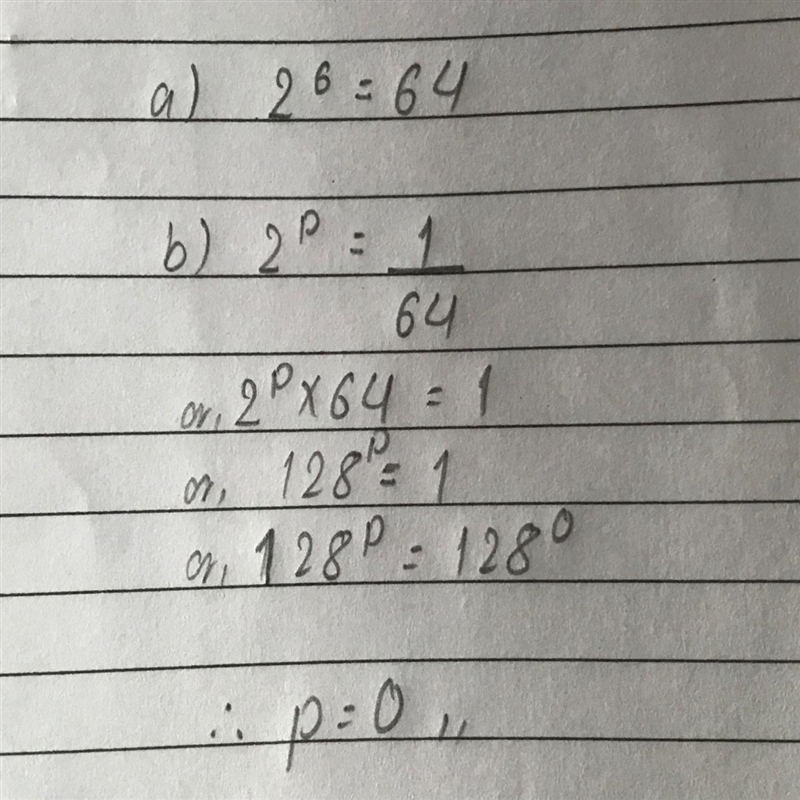 a) 2⁶ = 64
b) 2ᵖ = 1/64
or, 2ᵖ × 64 = 1
or, 128ᵖ = 1
or, 128ᵖ = 128⁰
∴ p = 0 ,,